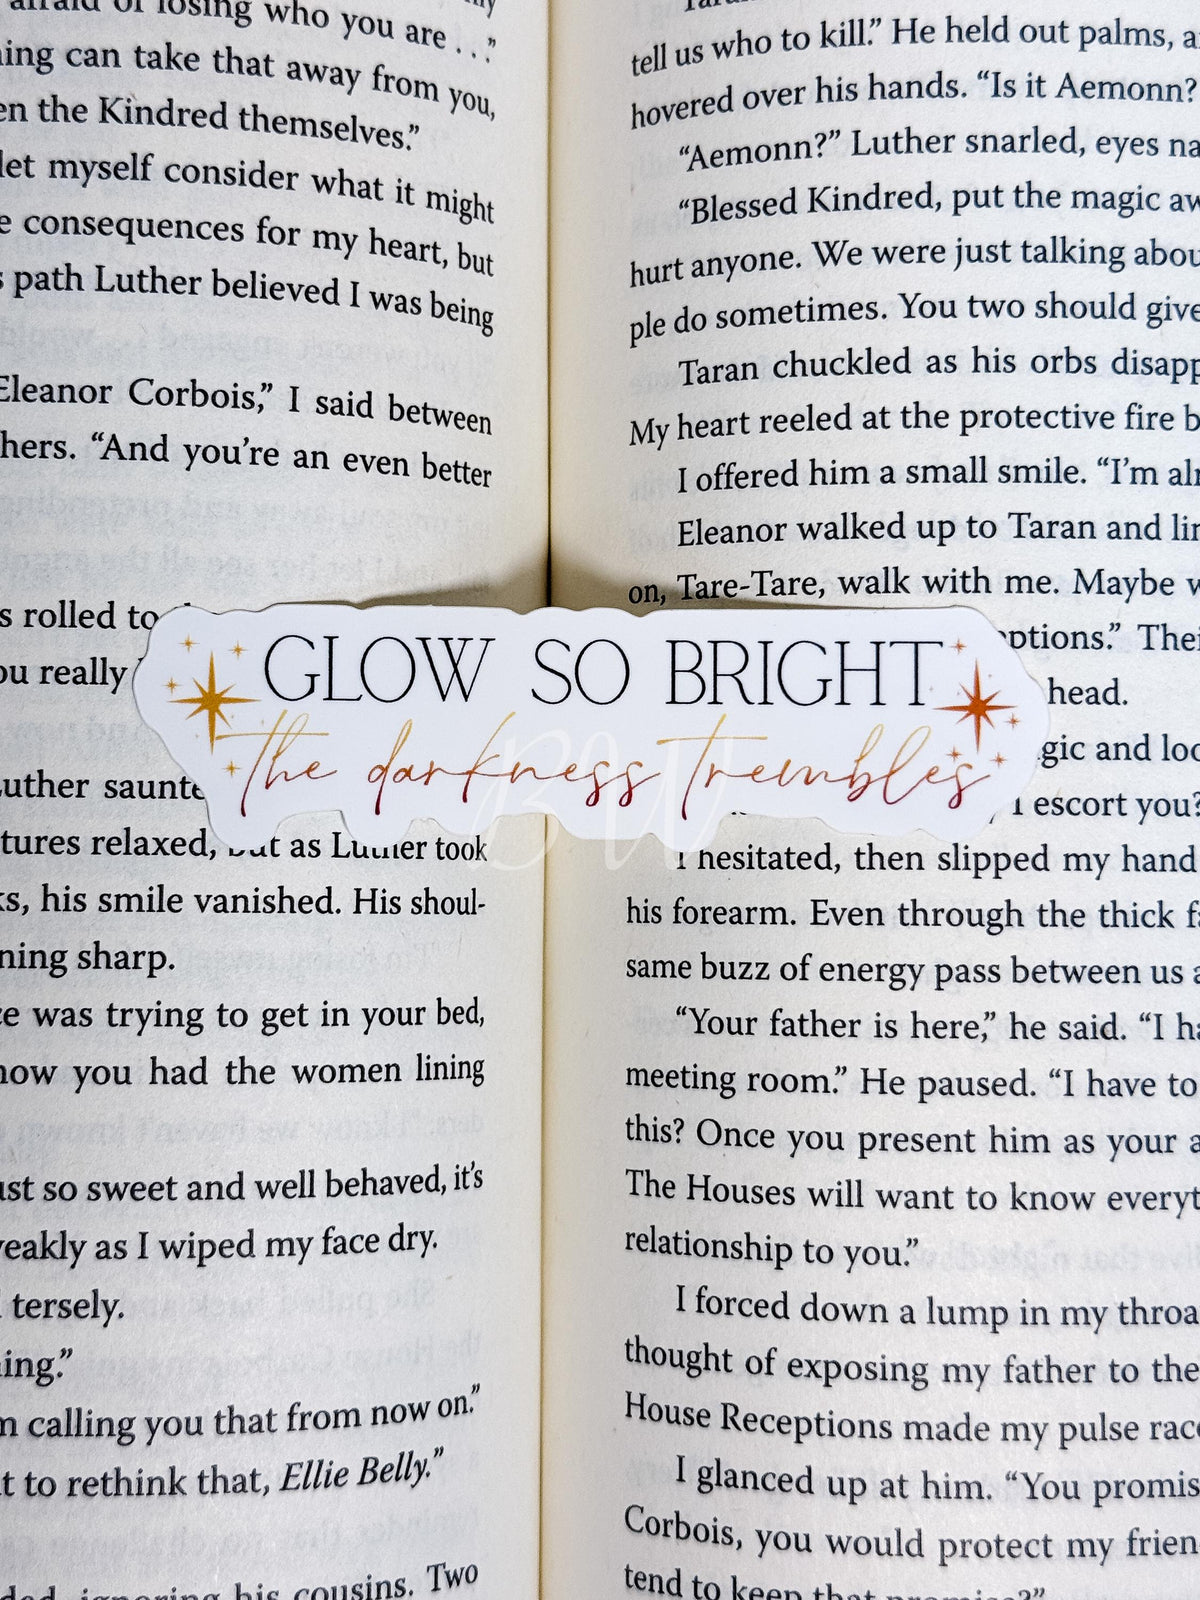 afraid of losing who you are . . ."
ing can take that away from you,
en the Kindred themselves."
let myself consider what it might
e consequences for my heart, but
s path Luther believed I was being
Eleanor Corbois," I said between
hers. "And you're an even better
s rolled to
ou really
Luther saunte
tures relaxed, but as Luther took
ks, his smile vanished. His shoul-
ning sharp.
ce was trying to get in your bed,
now you had the women lining
ust so sweet and well behaved, it's
weakly as I wiped my face dry.
tersely.
ing."
m calling you that from now on."
t to rethink that, Ellie Belly."
ded, ignoring his cousins. Two
GLOW SO BRIGHT
the darkness trembles
BW
tell us who to kill." He held out palms, a
hovered over his hands. "Is it Aemonn?
"Aemonn?" Luther snarled, eyes na
"Blessed Kindred, put the magic aw
hurt anyone. We were just talking abou
ple do sometimes. You two should give
Taran chuckled as his orbs disapp
My heart reeled at the protective fire b
I offered him a small smile. "I'm alr
Eleanor walked up to Taran and lin
on, Tare-Tare, walk with me. Maybe w
ptions." Thei
head.
gic and loo
I escort you?
I hesitated, then slipped my hand
his forearm. Even through the thick fa
same buzz of energy pass between us a
"Your father is here," he said. "I ha
meeting room." He paused. "I have to
this? Once you present him as your a
The Houses will want to know everyt
relationship to you."
I forced down a lump in my throa
thought of exposing my father to the
House Receptions made my pulse race
I glanced up at him. "You promis
Corbois, you would protect my frien
tend to keep that promise?"